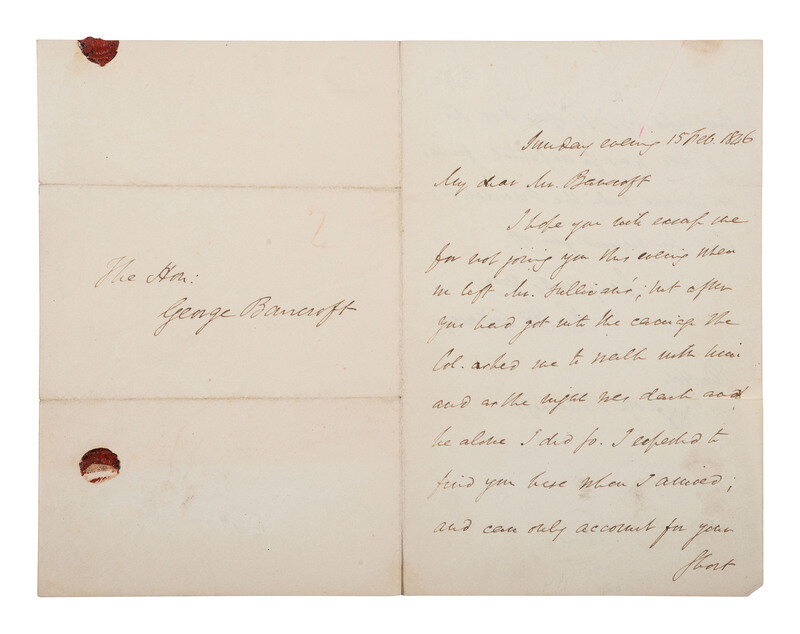 The Hon:
George Bancroft
Sunday evening 15 Feb. 1846
My dear Mr. Bancroft
I hope you will excuse me
for not joing you this evening when
we left Mr. Sullivans', but after
you had got into the carriage the
Col. asked me to walk with him
and as the night was dark and
he alone I did so. I expected to
find you here when I arrived;
and can only account for your
short